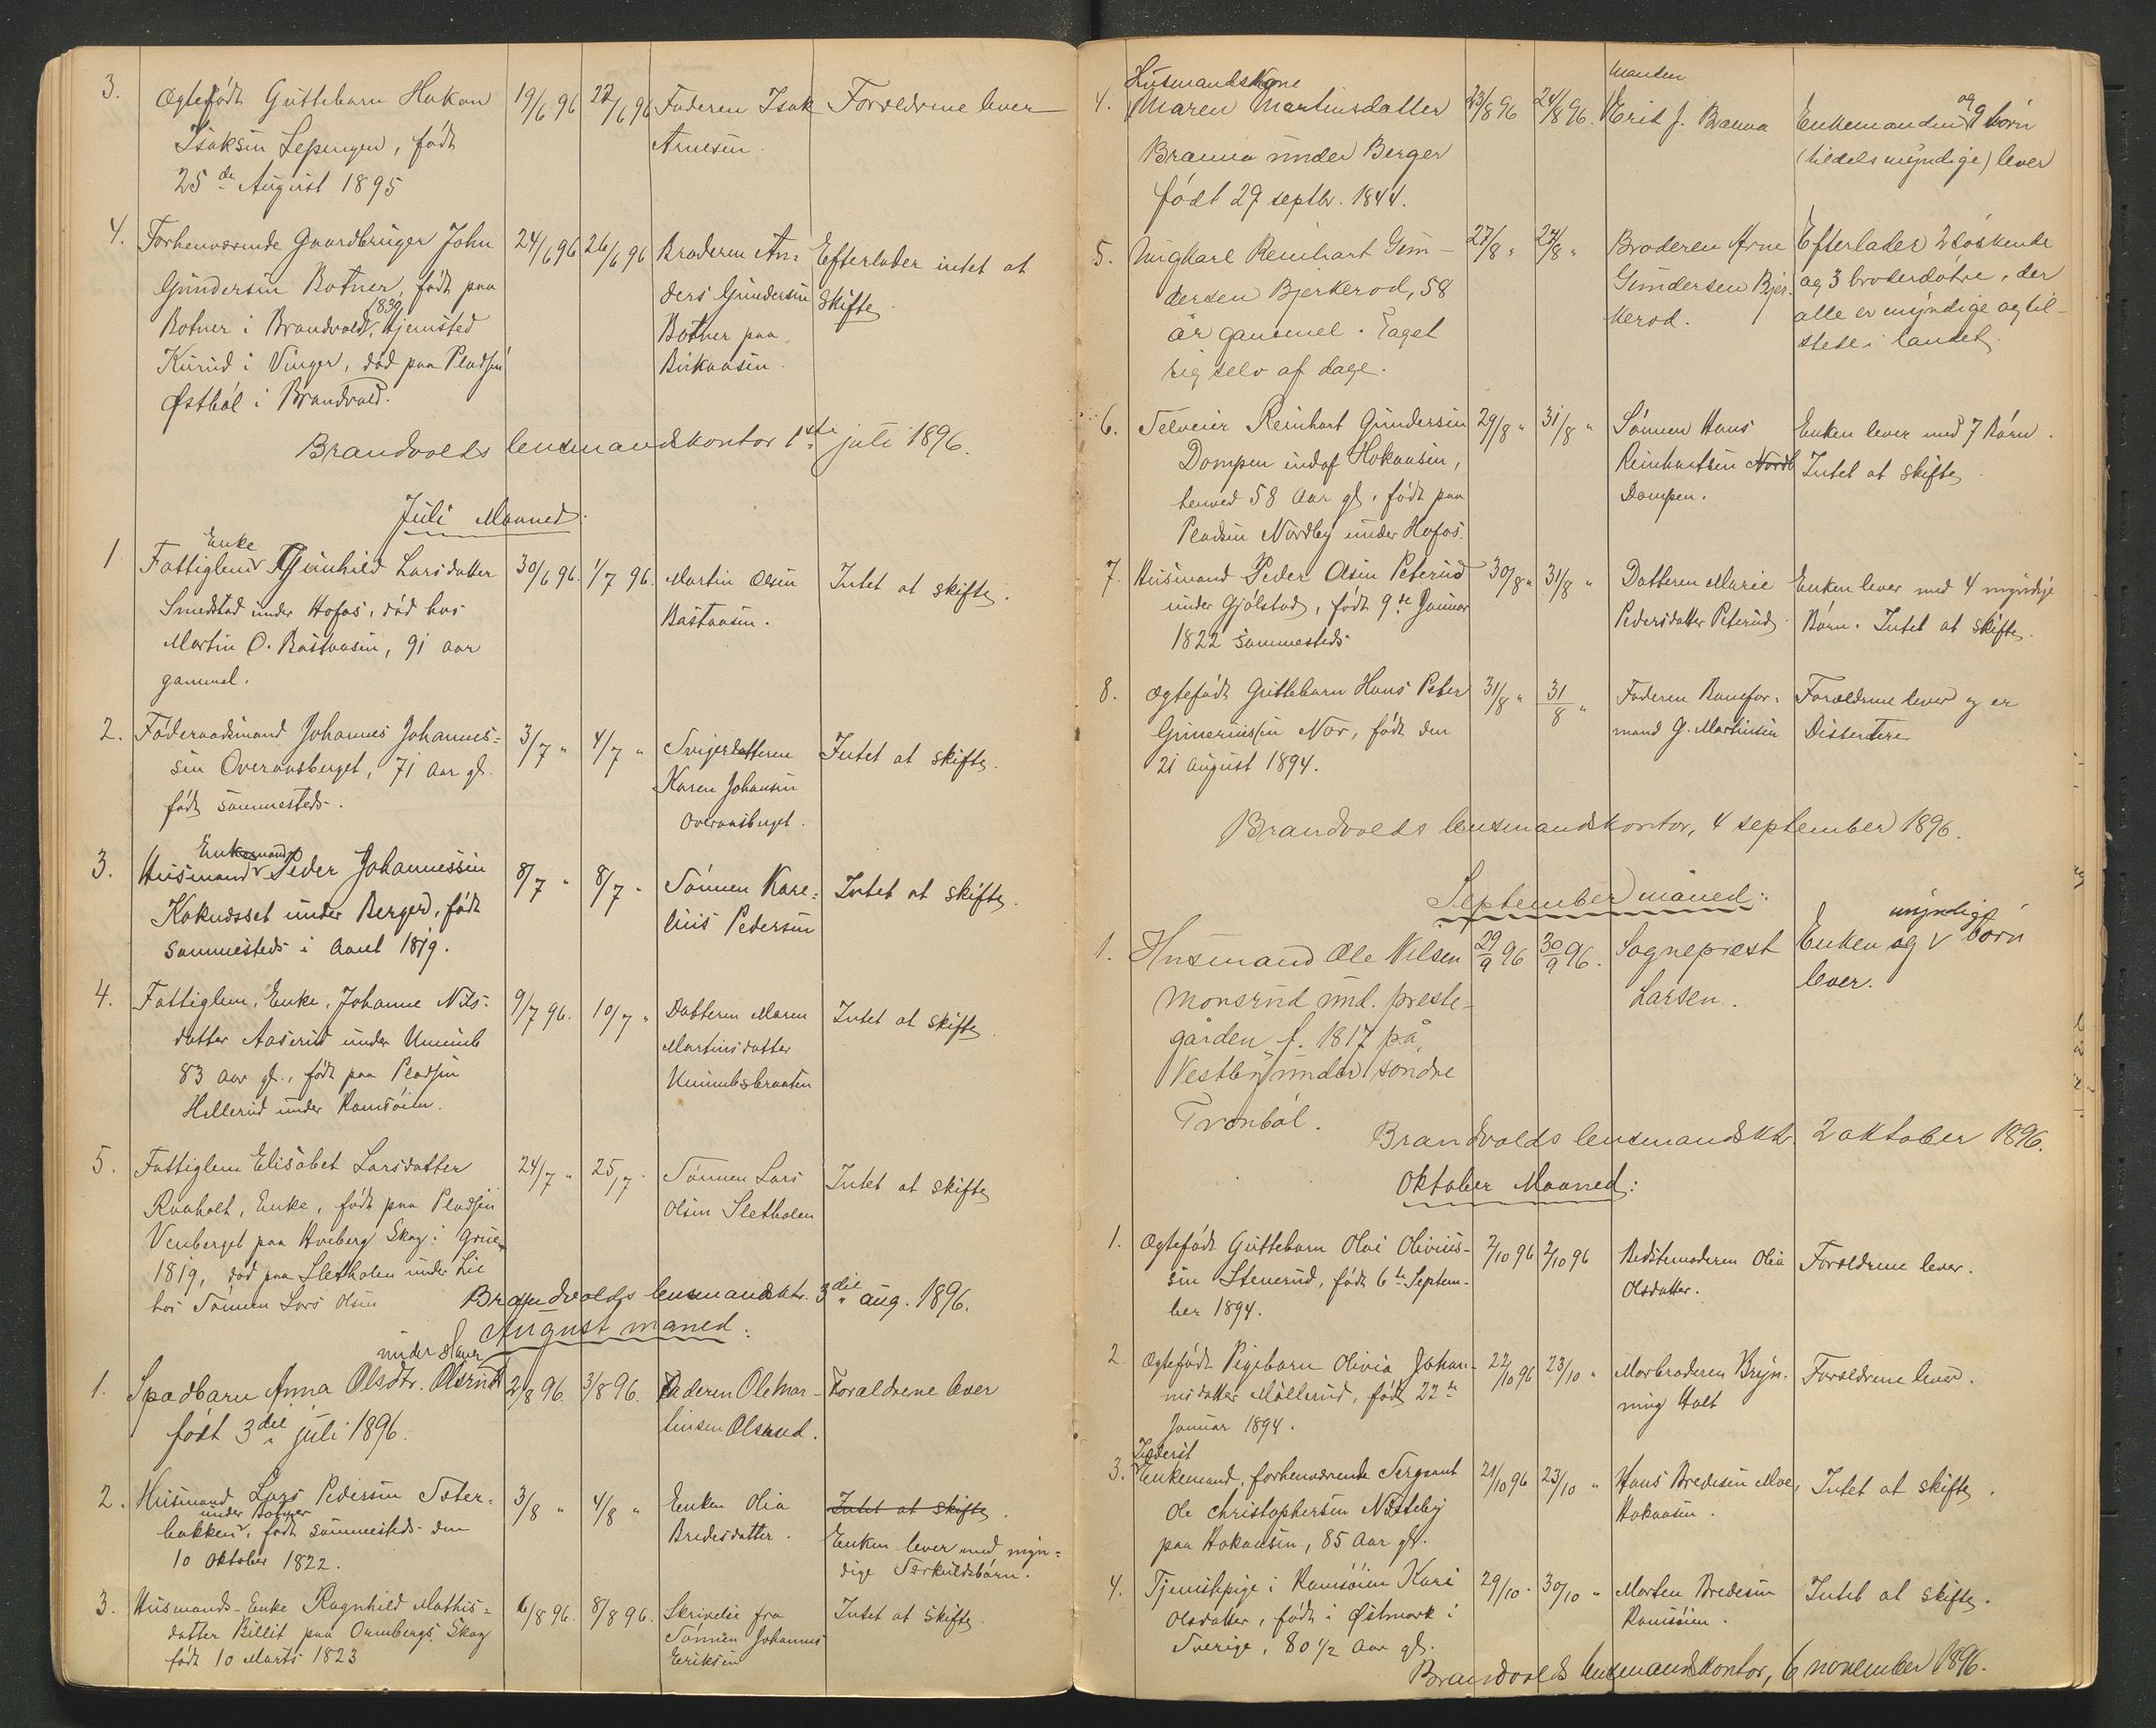 3. Ægtefødt Guttebarn Hakon 19/6 96 27/6 96 Faderen Isak Forældrene lever
Isaksen Lepungen, født Arnesen.
25de August 1895
4. Forhenværende Gaardbruger John 24/6 96 26/6 96 Broderen An- Efterlader intet at
Gundersen Botner, født paa ders Gundersen Skifte.
Botner i Brandvold 1839, Hjemsted Botner paa
Kurud i Vinger, død paa Pladsen Birkaasen.
Østbøl i Brandvold.
Brandvolds lensmandskontor 1ste juli 1896.
Juli Maaned:
Enke
1 Fattiglem Gunhild Larsdatter 30/6 96. 1/7 96. Martin Olsen Intet at skifte.
Smedstad under Hofos, død hos Bastaasen.
Martin O. Bastaasen, 91 aar
gammel.
2. Føderaadsmand Johannes Johannes- 3/7 " 4/7 " Svigerdatteren Intet at skifte.
sen Overaasberget, 71 Aar gl. Karen Johansen
født sammesteds. Overaasberget.
Enkemand
3. Husmand Peder Johannessen 8/7 " 8/7 " Sønnen Kare- Intet at skifte.
Kaknæsset under Berger, født lius Pedersen
sammesteds i Aaret 1819.
4. Fattiglem, Enke, Johanne Nils- 9/7 96. 10/7 " Datteren Maren Intet at skifte.
datter Aaserud under Kummel Martinsdatter
83 Aar gl., født paa Pladsen Kummelsbraaten
Hellerud under Ramsøien.
5. Fattiglem Elisabet Larsdatter 24/7 " 25/7 " Sønnen Lars Intet at skifte
Raaholt, Enke, født paa Pladsen Olsen Sletholen
Venberget paa Hveberg Skog i Grue
1819, død paa Sletholen under Lie
hos Sønnen Lars Olsen
Brandvolds lensmandsktr. 3die aug. 1896.
August maned:
under Haug
1. Spædbarn Anna Olsdtr. Olsrud 2/8 96. 3/8 96. Faderen Ole Mar- Foraldrene lever
født 3die juli 1896. tinsen Olsrud.
2. Husmand Lars Pedersen Sæter- 3/8 " 4/8 " Enken Olia Intet at skifte.
under Botner
bakken, født sammesteds den Bredesdatter. Enken lever med myn-
10 oktober 1822. dige Særkuldsbørn.
3. Husmands-Enke Ragnhild Mathis- 6/8 96. 8/8 96. Skrivelse fra Intet at skifte.
datter Billit paa Oumbergs Skog Sønnen Johannes
født 10 Marts 1823 Eriksen
Husmandskone manden
4. Maren Martinsdatter 23/8 96 24/8 96. Erik J. Branna Enkemanden og 9 børn
Branna under Berger (tildels myndige) lever
født 29 septbr. 1844.
5. Ungkarl Reinhart Gun- 27/8 " 27/8 " Broderen Arne Efterlader 2 søskende
dersen Bjerkerod, 58 Gundersen Bjer- og 3 broderdøtre, der
år gammel. Taget kerod. alle er myndige og til-
sig selv af dage. stede i landet.
6. Selveier Reinhart Gundersen 29/8 " 31/8 " Sønnen Hans Enken lever med 7 Børn.
Dompen indaf Hokaasen, Reinhartsen Nordb Intet at skifte.
henved 58 Aar gl. født paa Dompen.
Pladsen Nordby under Hofos.
7. Husmand Peder Olsen Peterud 30/8 " 31/8 " Datteren Marie Enken lever med 4 myndige
under Gjølstad, født 9de Januar Pedersdatter Peterud. Børn. Intet at skifte.
1822 sammesteds
8. Ægtefødt Guttebarn Hans Peter 31/8 " 31/8 " Faderen Baneformand Forældrene lever og er
Gunerius(en Nor, født den G. Martinsen Dissentere
21 august 1894.
Brandvolds lensmandskontor, 4 september 1896.
September måned:
myndige
1. Husmand Ole Nilsen 29/9 96 30/9 96. Sogneprest Enken og børn
Monsrud und. preste- Larsen. lever.
gården f. 1817 på
Vestby under søndre
Tronbøl.
Brandvolds lensmandsktr. 2 oktober 1896.
Oktober Maaned:
1. Ægtefødt Guttebarn Olai Olivius- 2/10 96 2/10 96 Bedstemoderen Olia Forældrene lever.
sen Stenerud, født 6te Septem- Olsdatter.
ber 1894.
2. Ægtefødt Pigebarn Olivia Johan- 22/10 96 23/10 " Morbroderen Bryn- Forældrene lever.
nesdatter Møllerud, født 22de ning Holt
Januar 1894.
Inderst
3. Enkemand, forhenværende Sergeant 21/10 96 23/10 " Hans Bredesen Moe, Intet at skifte.
Ole Christophersen Næsteby Hokaasen.
paa Hokaasen, 85 Aar gl.
4. Tjenstepige i Ramsøien Kari 29/10 " 30/10 " Morten Bredesen Intet at skifte.
Olsdatter, født i Østmark i Ramsøien.
Sverige, 80 1/2 Aar gl.
Brandvolds lensmandskontor, 6 november 1896.